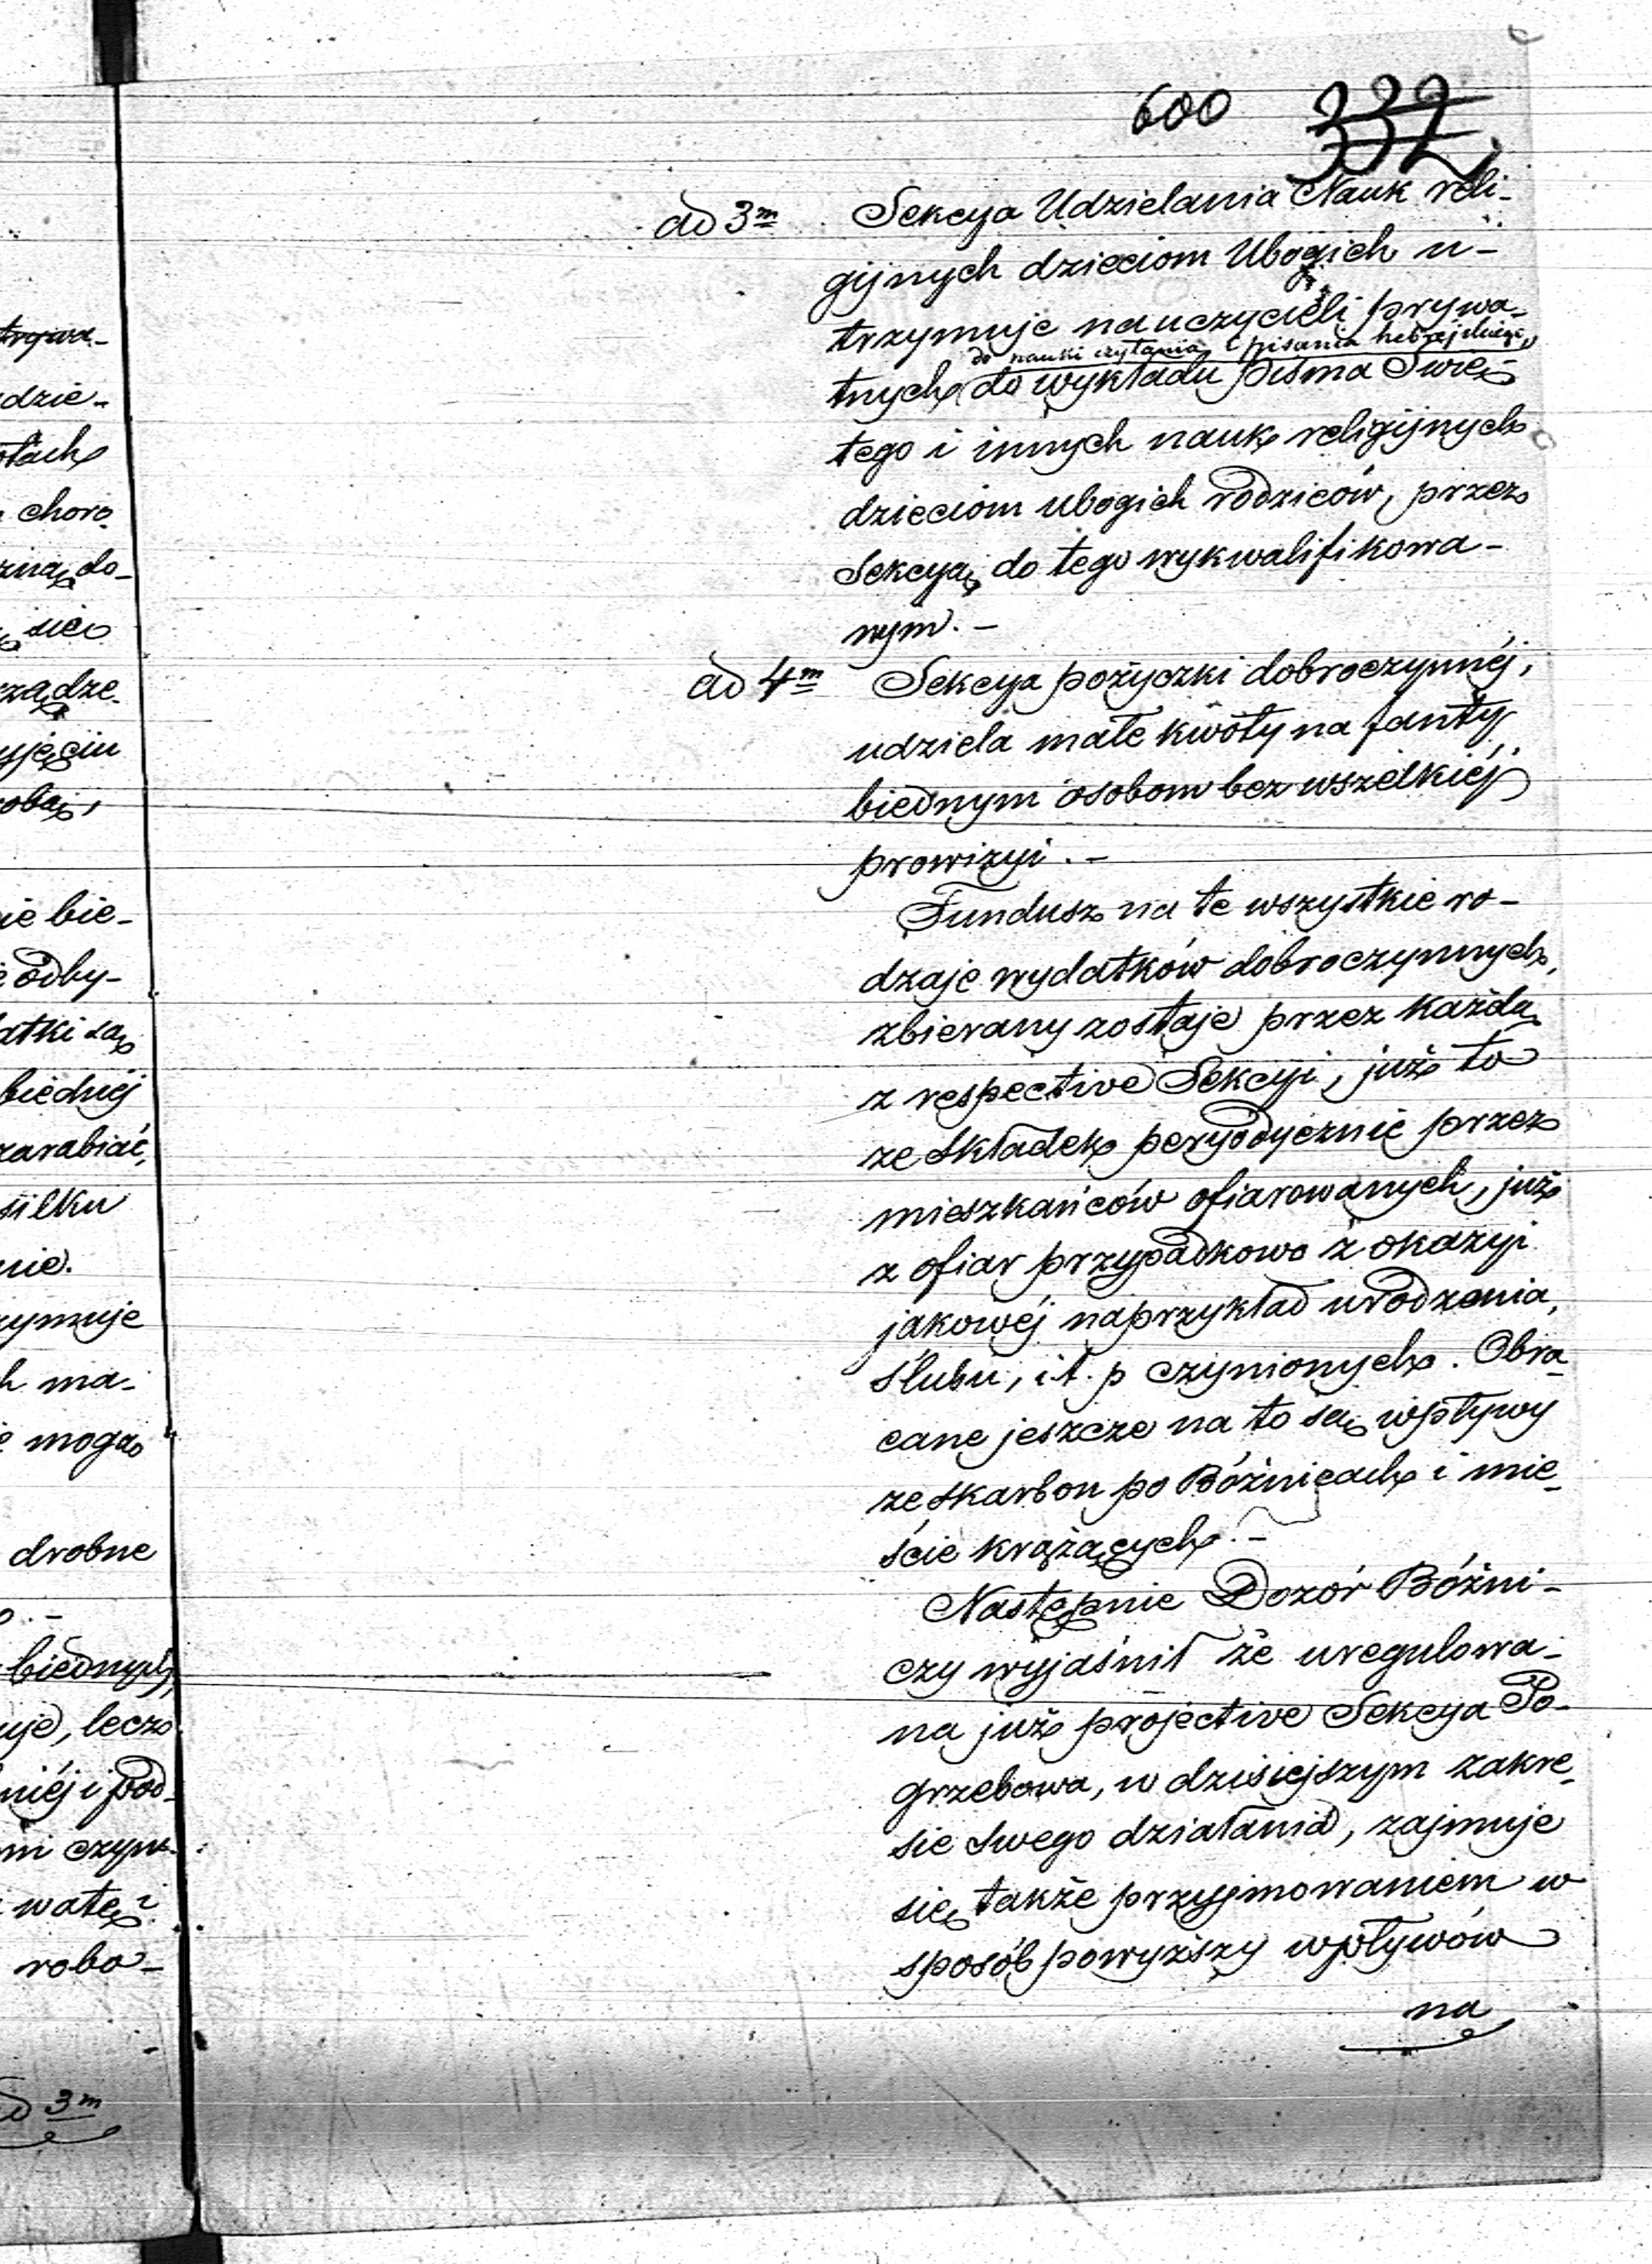 600 332
ad 3m Sekcya Udzielania Nauk reli-
gijnych dzieciom Ubogich u-
trzymuje nauczycieli prywa-
do nauki czytania i pisania hebrajskiego,
tnych do wykładu pisma Swię-
tego i innych nauk religijnych
dzieciom ubogich rodziców, przez
Sekcyą do tego wykwalifikowa-
nym. -
ad 4m Sekcya pożyczki dobroczynnéj,
udziela małe kwoty na fanty
biednym osobom bez wszelkiéj
prowizyi. -
Fundusz na te wszystkie ro-
dzaje wydatków dobroczynnych,
zbierany zostaje przez każdą
z respective Sekcyi, już to
ze składek peryodycznie przez
mieszkańców ofiarowanych, już
z ofiar przypadkowo z okazyi
jakowéj naprzykład urodzenia,
ślubu, i t. p czynionych. Obra-
cane jeszcze na to są wpływy
ze skarbon po Bóżnicach i mie-
ście krążących. -
Następnie Dozór Bóżni-
czy wyjaśnił że uregulowa-
na już projective Sekcya Po-
grzebowa, w dzisiejszym zakre-
sie swego działania, zajmuje
się także przyjmowaniem w
sposób powyższy wpływów
na
trzywa-
dzie-
choro
do-
się
rządze-
bie-
odby-
są
biednéj
zarabiać,
silku
ma-
mogą
drobne
biednych,
lecz
i pod-
watę i
robo-
ad 3m